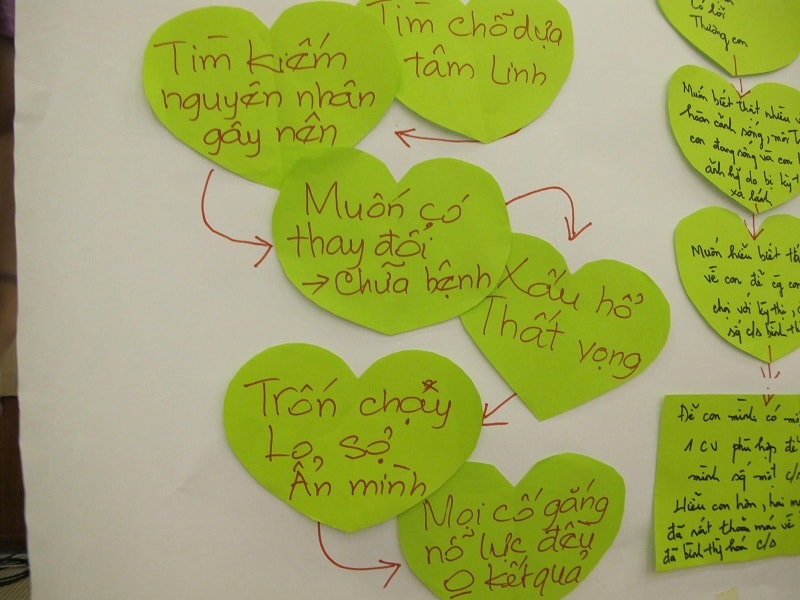 Tìm chỗ dựa
tâm linh
Tìm kiếm
nguyên nhân
gây nên
Muốn có
thay đổi
→ Chữa bệnh
Xấu hổ
Thất vọng
Trốn chạy
Lo, sợ
Ẩn mình
Mọi cố gắng
nỗ lực đều
O kết quả
Có lỗi
Thương con
Muốn biết thật nhiều
hoàn cảnh sống, môi
con đang sống và con
ảnh hg do bị kỳ
xa lánh
Muốn hiểu biết
về con để cg con
chọi với kỳ thị,
số c/s bình
Để con mình có
1 CV phù hợp để
mình số một c/s
Hiểu con hơn, hai
đã rất thoải mái về
đã bình thg hoá c/s